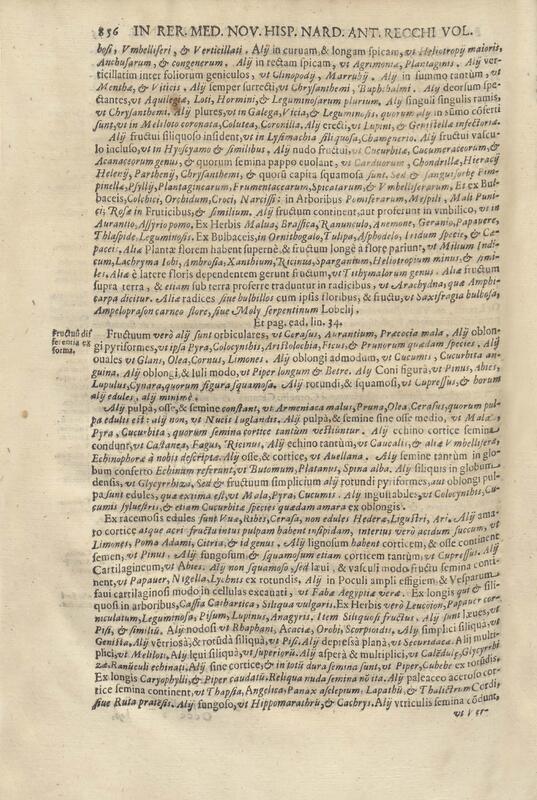 856 IN RER. MED. NOV. HISP. NARD. ANT. RECCHI VOL.
bosi, Vmbelliseri, & Verticillati. Alij in curuam, & longam spicam, vt Heliotropij maioris,
Anchusarum, & congenerum. Alij in rectam spicam, vt Agrimoniæ, Plantaginis. Alij ver-
ticillatim inter foliorum geniculos, vt Clinopody, Marrubij. Alij in summo tantùm, vt
Menthæ, & Viticis. Alij semper surrecti, vt Chrysanthemi, Buphthalmi. Alij deorsum spe-
ctantes, vt Aquilegiæ, Loti, Hormini, & Leguminosarum plurium. Alij singuli singulis ramis,
vt Chrysanthemi. Alij plures, vt in Galega, Vicia, & Leguminosis, quorum alij in sūmo cōferti
sunt, vt in Meliloto coronata, Colutea, Coronilla. Alij erecti, vt Lupini, & Genistella infectoria.
Alij fructui siliquoso insident, vt in Lysimachia siliquosa, Chamænerio. Alij fructui vascu-
lo incluso, vt in Hyoscyamo & similibus. Alij nudo fructui, vt Cucurbitæ, Cucumeraceorum, &
Acanaceorum genus, & quorum semina pappo euolant, vt Carduorum, Chondrillæ, Hieracij
Helenij, Parthenij, Chrysanthemi, & quorū capita squamosa sunt. Sed & sanguisorbæ Pim-
pinellæ, Psyllij, Plantaginearum, Frumentacearum, Spicatarum, & Vmbelliferarum, Et ex Bul-
baceis, Colchici, Orchidum, Croci, Narcissi: in Arboribus Pomiferarum, Mespili, Mali Puni-
ci, Rosæ in Fruticibus, & similium. Alij fructum continent, aut proferunt in vmbilico, vt in
Aurantio, Assyrio pomo, Ex Herbis Malua, Brassica, Ranunculo, Anemone, Geranio, Papauere,
Thlaspide, Leguminosis. Ex Bulbaceis, in Ornithogalo, Tulipa, Asphodelo, Iridum specie, & Ce-
paceis. Aliæ Plantæ florem habent supernè, & fructum longè à flore pariunt, vt Milium Indi-
cum, Lachryma Iobi, Ambrosia, Xanthium, Ricinus, Sparganium, Heliotropium minus, & simi-
les. Aliæ è latere floris dependentem gerunt fructum, vt Tithymalorum genus. Aliæ fructum
supra terra, & etiam sub terra proferre traduntur in radicibus, vt Arachydna, quæ Amphi-
carpa dicitur. Aliæ radices siue bulbillos cum ipsis floribus, & fructu, vt Saxifragia bulbosa,
Ampeloprason carneo flore, siue Moly serpentinum Lobelij.
Et pag. ead. lin. 34.
Fructuū dif
ferentia ex
forma.
Fructuum verò alij sunt orbiculares, vt Cerasus, Aurantium, Præcocia mala. Alij oblon-
gi pyriformes, vt ipsa Pyra, Colocynthis, Aristolochia, Ficus, & Prunorum quædam species. Alij
ouales vt Glans, Olea, Cornus, Limones. Alij oblongi admodum, vt Cucumis, Cucurbita an-
guina. Alij oblongi, & Iuli modo, vt Piper longum & Betre. Alij Coni figura, vt Pinus, Abies,
Lupulus, Cynara, quorum figura squamosa. Alij rotundi, & squamosi, vt Cupressus, & horum
alij edules, alij minimè.
Alij pulpa, osse, & semine constant, vt Armeniaca malus, Pruna, Olea, Cerasus, quorum pul-
pa edulis est: alij non, vt Nucis Iuglandis. Alij pulpa, & semine sine osse medio, vt Mala,
Pyra, Cucurbita, quorum semina cortice tantùm vestiuntur. Alij echino cortice semina
condunt, vt Castanea, Fagus, Ricinus, Alij echino tantùm, vt Caucalis, & aliæ Vmbelliferæ,
Echinophoræ à nobis descriptæ. Alij osse, & cortice, vt Auellana. Alij semine tantùm in glo-
bum conserto Echinum referunt, vt Butomum, Platanus, Spina alba. Alij siliquis in globum
densis, vt Glycyrrhiza, Sed & fructuum simplicium alij rotundi pyriformes, aut oblongi pul-
pa sunt edules, quæ eximia est, vt Mala, Pyra, Cucumis. Alij ingustabiles, vt Colocynthis, Cu-
cumis syluestris, & etiam Cucurbitæ species quædam amara ex oblongis.
Ex racemosis edules sunt Vuæ, Ribes, Cerasa, non edules Hederæ, Ligustri, Ari. Alij ama-
ro cortice atque acri fructu intus pulpam habent insipidam, interius verò acidum succum, vt
Limones, Poma Adami, Citria, & id genus. Alij lignosum habent corticem, & osse continent
semen, vt Pinus. Alij fungosum, & squamosum etiam corticem tantùm, vt Cupressus. Alij
Cartilagineum, vt Abies. Alij non squamoso, sed læui, & vasculi modo fructu semina conti-
nent, vt Papauer, Nigella, Lychnis ex rotundis, Alij in Poculi ampli effigiem & Vesparum
faui cartilaginosi modo in cellulas excauati, vt Fabæ Aegyptiæ veræ. Ex longis qui & sili-
quosi in arboribus, Cassia Cathartica, Siliqua vulgaris. Ex Herbis verò Leucoion, Papauer cor-
niculatum, Leguminosa, Pisum, Lupinus, Anagyris. Item Siliquosi fructus. Alij sunt læues, vt
Pisi, & similiū. Alij nodosi vt Rhaphani, Acaciæ, Orobi, Scorpioidis, Alij simplici siliqua, vt
Genistæ. Alij vtriosà, & rotūdà siliqua, vt Pisi. Alij depressà planà, vt Securidacæ. Alij multi-
plici, vt Meliloti, Alij leui siliqua, vt superiorū. Alij asperà & multiplici, vt Calēdulæ, Glycyrrhi-
zæ. Ranūculi echinati. Alij sine cortice, & in totū dura semina sunt, vt Piper, Cubebe ex rotūdis.
Ex longis Caryophylli, & Piper caudatū. Reliqua nuda semina nō ita. Alij paleaceo aceroso cor-
tice semina continent, vt Thapsia, Angelica, Panax asclepium, Lapathū, & Thalictrum Cordi,
siue Ruta pratēsis. Alij fungoso, vt Hippomarathrū, & Cachrys. Alij vtriculis semina cōdunt,